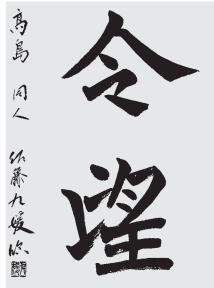 令望
高島 同人 佐藤九媛臨